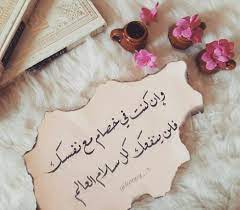 وإن كنت في خصام مع نفسك
فلن ينفعك كل سلام العالم